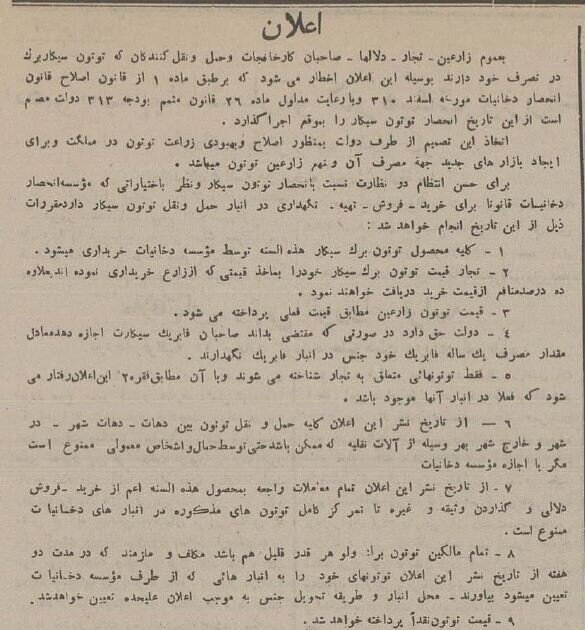 اعلان
بعموم زارعین - تجار - دلالها - صاحبان کارخانجات وحمل ونقل کنندگان که توتون سیکاربرك
در تصرف خود دارند بوسیله این اعلان اخطار می شود که برطبق ماده ۱ از قانون اصلاح قانون
انحصار دخانیات مورخه اسفند ۳۱۰ وبا رعایت مدلول ماده ۲۶ قانون متمم بودجه ۳۱۳ دولت مصمم
است از این تاریخ انحصار توتون سیکار را بموقع اجرا گذارد .
اتخاذ این تصمیم از طرف دولت بمنظور اصلاح وبهبودی زراعت توتون در مملکت وبرای
ایجاد بازار های جدید جهة مصرف آن و بنفع زارعین توتون میباشد .
برای حسن انتظام در نظارت نسبت بانحصار توتون سیکار ونظر باختیاراتی که مؤسسه انحصار
دخانیات قانونا برای خرید - فروش - تهیه - نگهداری در انبار حمل ونقل توتون سیکار دارد مقررات
ذیل از این تاریخ انجام خواهد شد :
۱ - کلیه محصول توتون برك سیکار هذه السنه توسط مؤسسه دخانیات خریداری میشود .
۲ - تجار قیمت توتون برك سیکار خود را بماخذ قیمتی که از زارع خریداری نموده اند بعلاوه
ده درصد منافع از قیمت خرید دریافت خواهند نمود .
۳ - قیمت توتون زارعین مطابق قیمت فعلی پرداخته می شود .
۴ - دولت حق دارد در صورتی که مقتضی بداند صاحبان فابریك سیکارت اجازه دهد معادل
مقدار مصرف یك ساله فابریك خود جنس در انبار فابریك نگهدارند .
۵ - فقط توتونهائی متعلق به تجار شناخته می شوند وبا آن مطابق فقره ۲ این اعلان رفتار می
شود که فعلا در انبار آنها موجود باشد .
۶ - از تاریخ نشر این اعلان کلیه حمل و نقل توتون بین دهات - دهات شهر - در
شهر و خارج شهر بهر وسیله از آلات نقلیه که ممکن باشد حتی توسط حمال واشخاص معمولی ممنوع است
مگر با اجازه مؤسسه دخانیات
۷ - از تاریخ نشر این اعلان تمام معاملات راجعه بمحصول هذه السنه اعم از خرید - فروش
دلالی و گذاردن وثیقه و غیره تا تمرکز کامل توتون های مذکوره در انبار های دخانیات
ممنوع است .
۸ - تمام مالکین توتون برك ولو هر قدر قلیل هم باشد مکلف و ملزمند که در مدت دو
هفته از تاریخ نشر این اعلان توتونهای خود را به انبار هائی که از طرف مؤسسه دخانیات
تعیین میشود بیاورند - محل انبار و طریقه تحویل جنس به موجب اعلان علیحده تعیین خواهد شد .
۹ - قیمت توتون نقداً پرداخته خواهد شد .